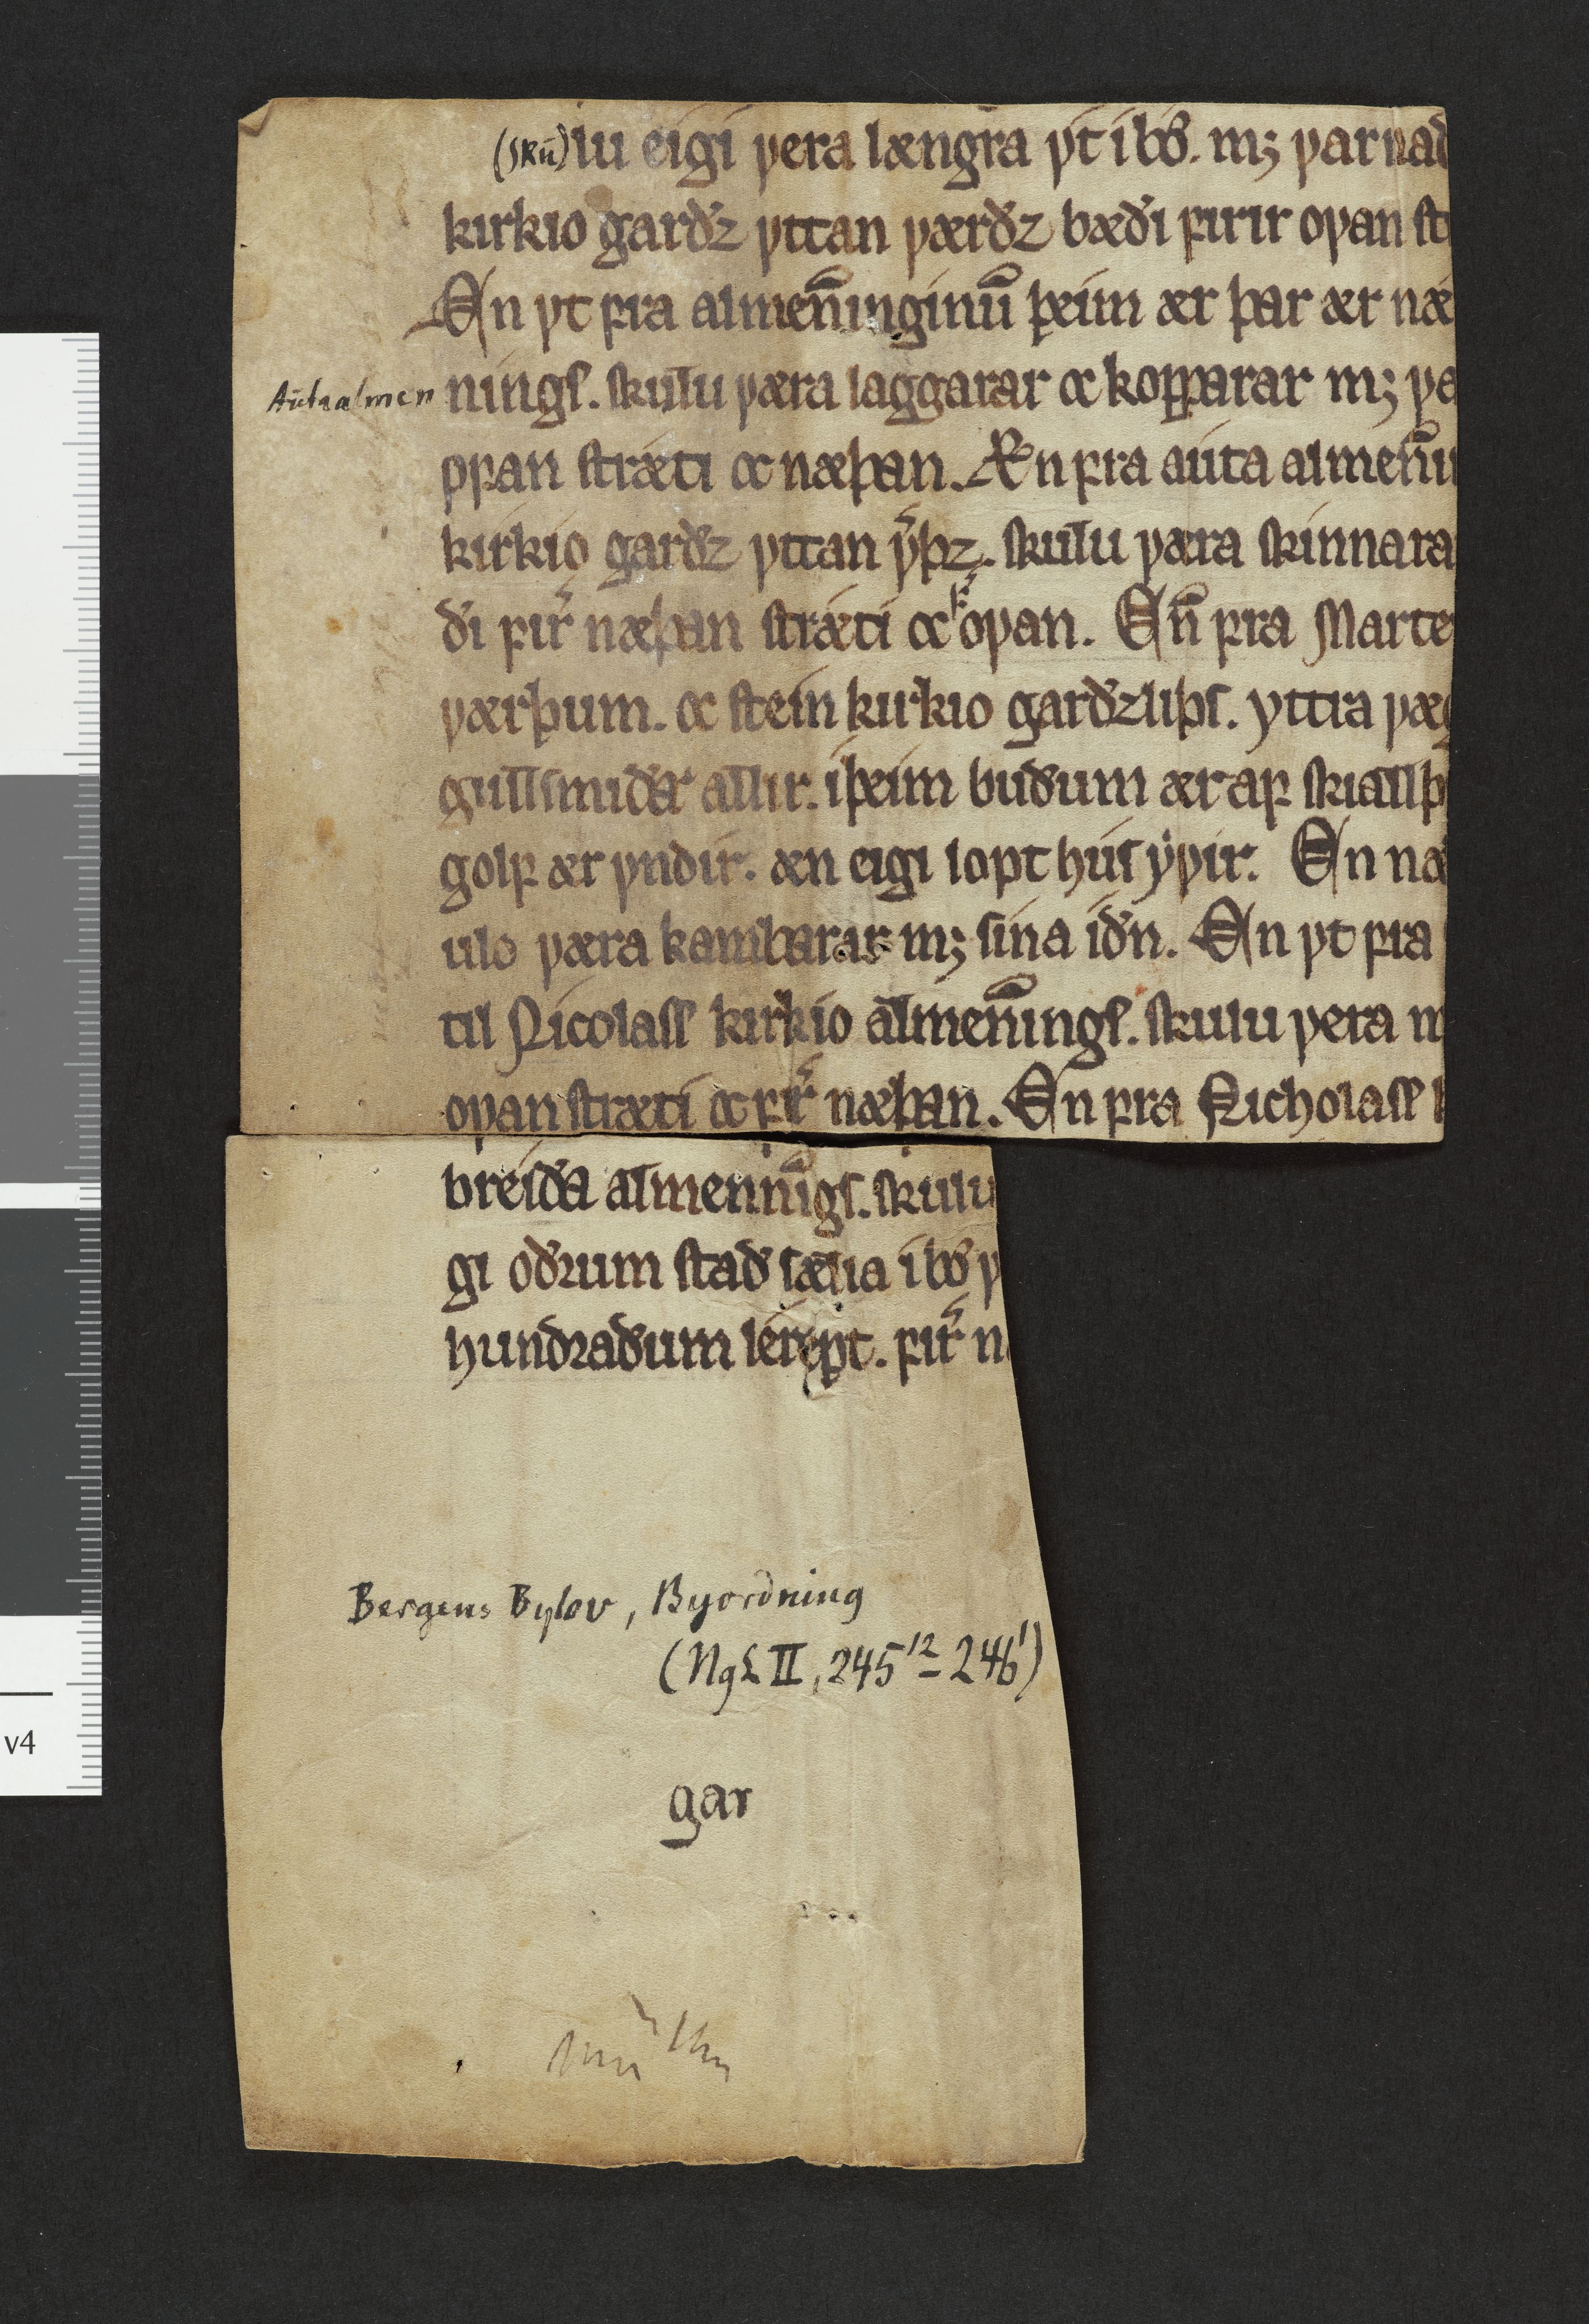 (skú)lu eigi ꝩera længra ẏt i bø̅. mꝫ ꝩar nad
kirkio gardz yttan ꝩærdz bæði firir oꝩan st
En yt fra almēninginū þeim ær þar ær næ
Auta almen nings. skulu ꝩæra laggarar ok kopparar mꝫ ꝩa
oꝩan stræti ok næþan. Æn fra auta almēni
kirkio gardz yttan ꝩ͛þz. skulu ꝩæra skinnara
ði fir͛ næþan stræti ok f͛ oꝩan. En̄ fra Marte
ꝩærþum. ok stein kirkio gardzliþs. yttra ꝩæg
gullsmiðar allir. i þeim buðum ær af skiallþ
golf ær yndir. æn eigi lopt hus yꝩir. En næ
ulo ꝩæra kambarar mꝫ sina iðn. En yt fra
til Nicolass kirkio almēnings. skulu ꝩera m
oꝩan stræti ok fir͛ næþan. En fra Nicholass k
breiða almennīgs. skulu
gi oðrum stað sælia i bø̅ ꝩ
hundraðum lérept. fir͛ n
Bergens Bylov, Byordning
(NgL II, 245¹² – 246¹)
gar